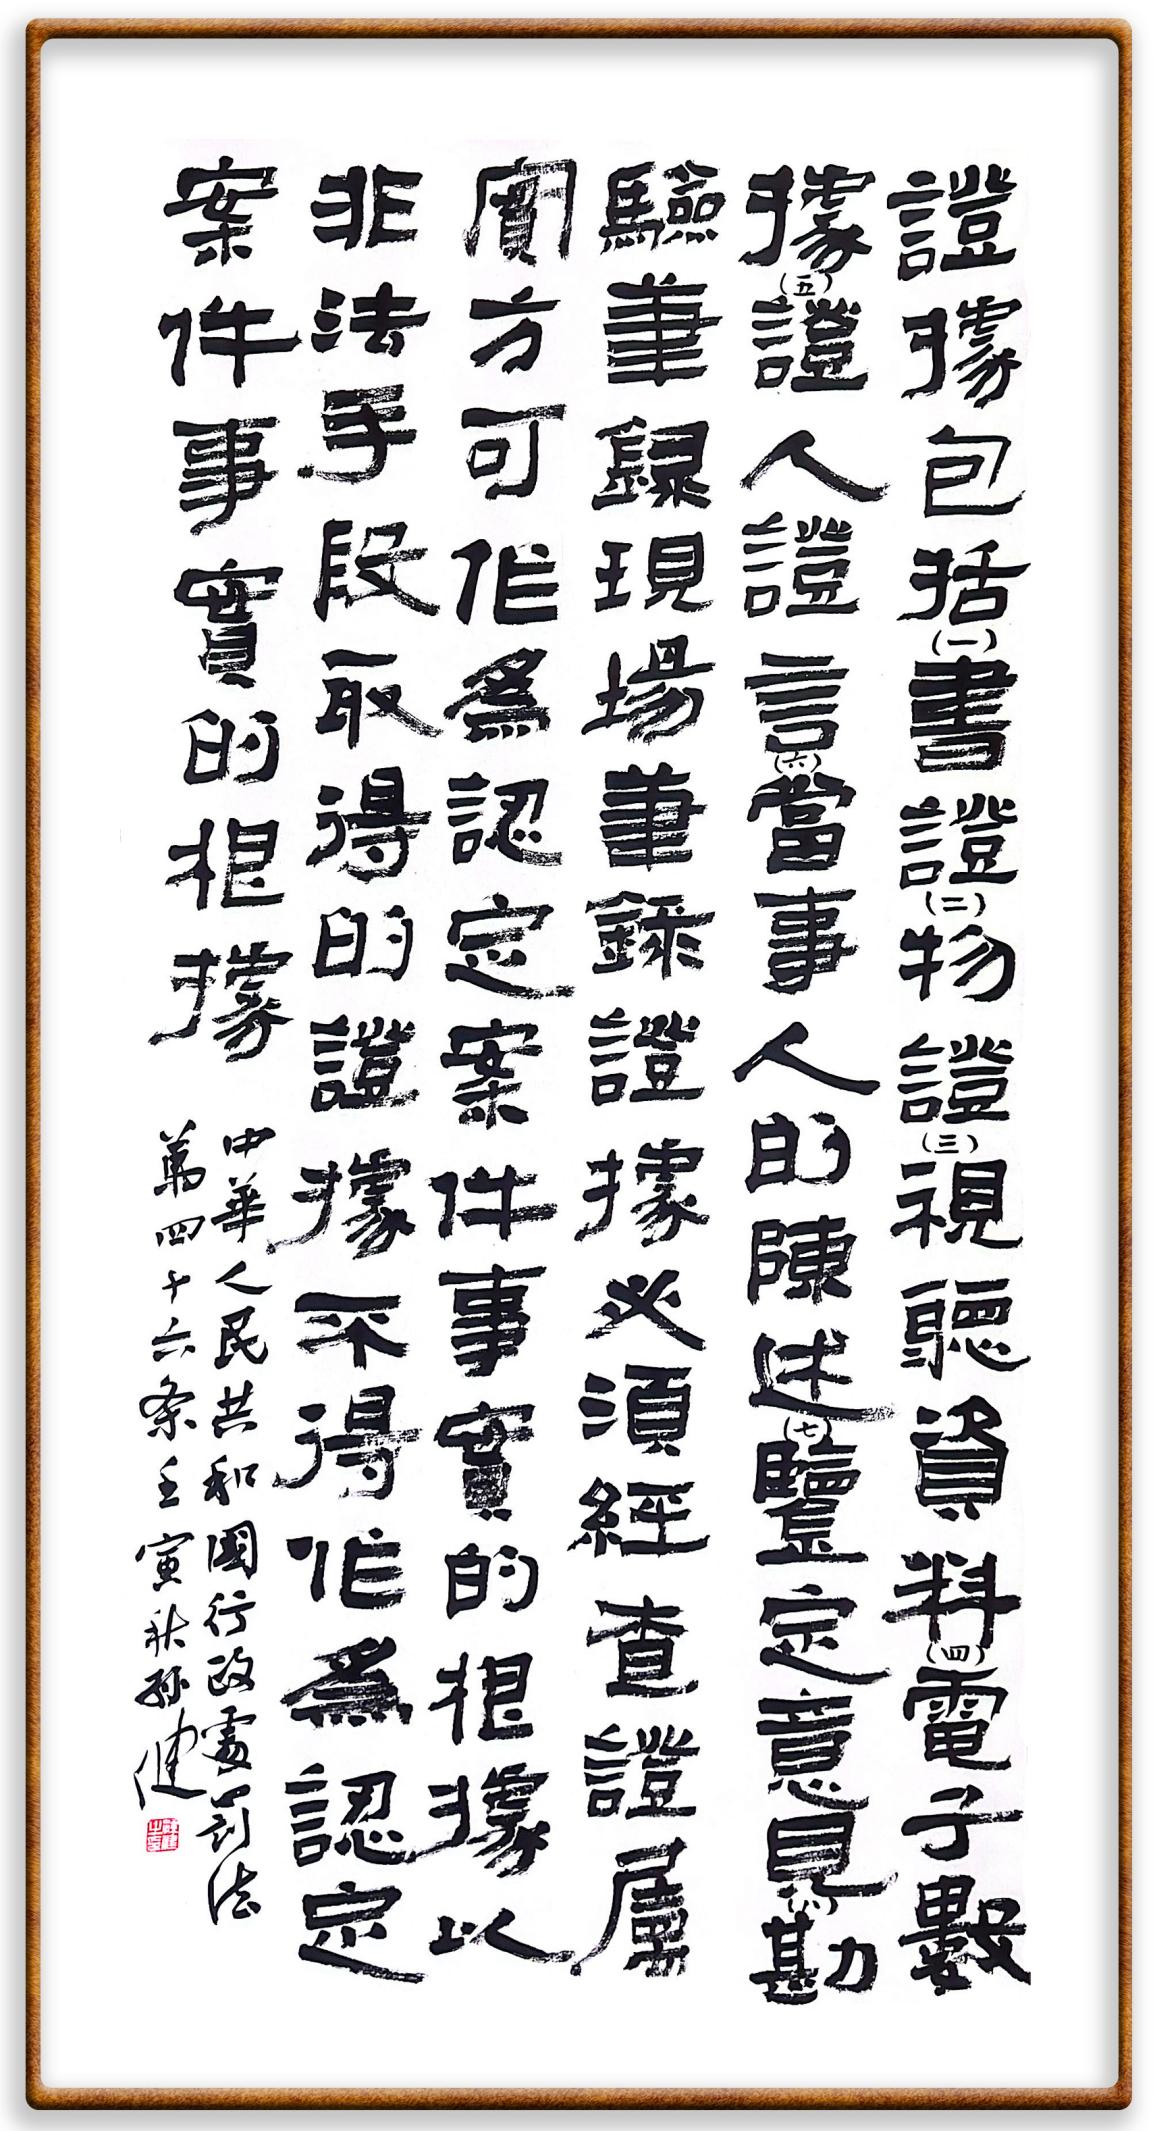 證據包括(一)書證(二)物證(三)視聽資料(四)電子數
據(五)證人證言(六)當事人的陳述(七)鑒定意見(八)勘
驗筆錄現場筆錄證據必須經查證屬
實方可作爲認定案件事實的根據以
非法手段取得的證據不得作爲認定
案件事實的根據
中華人民共和國行政處罰法
第四十六条壬寅秋孫健